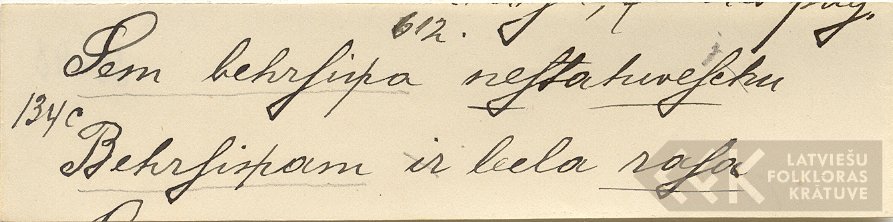 612.
Sem behrsiņa nestatuweschu
134c
Behrsiņam ir leela rasa
LATVIEŠU
FOLKLORAS
KRĀTUVE